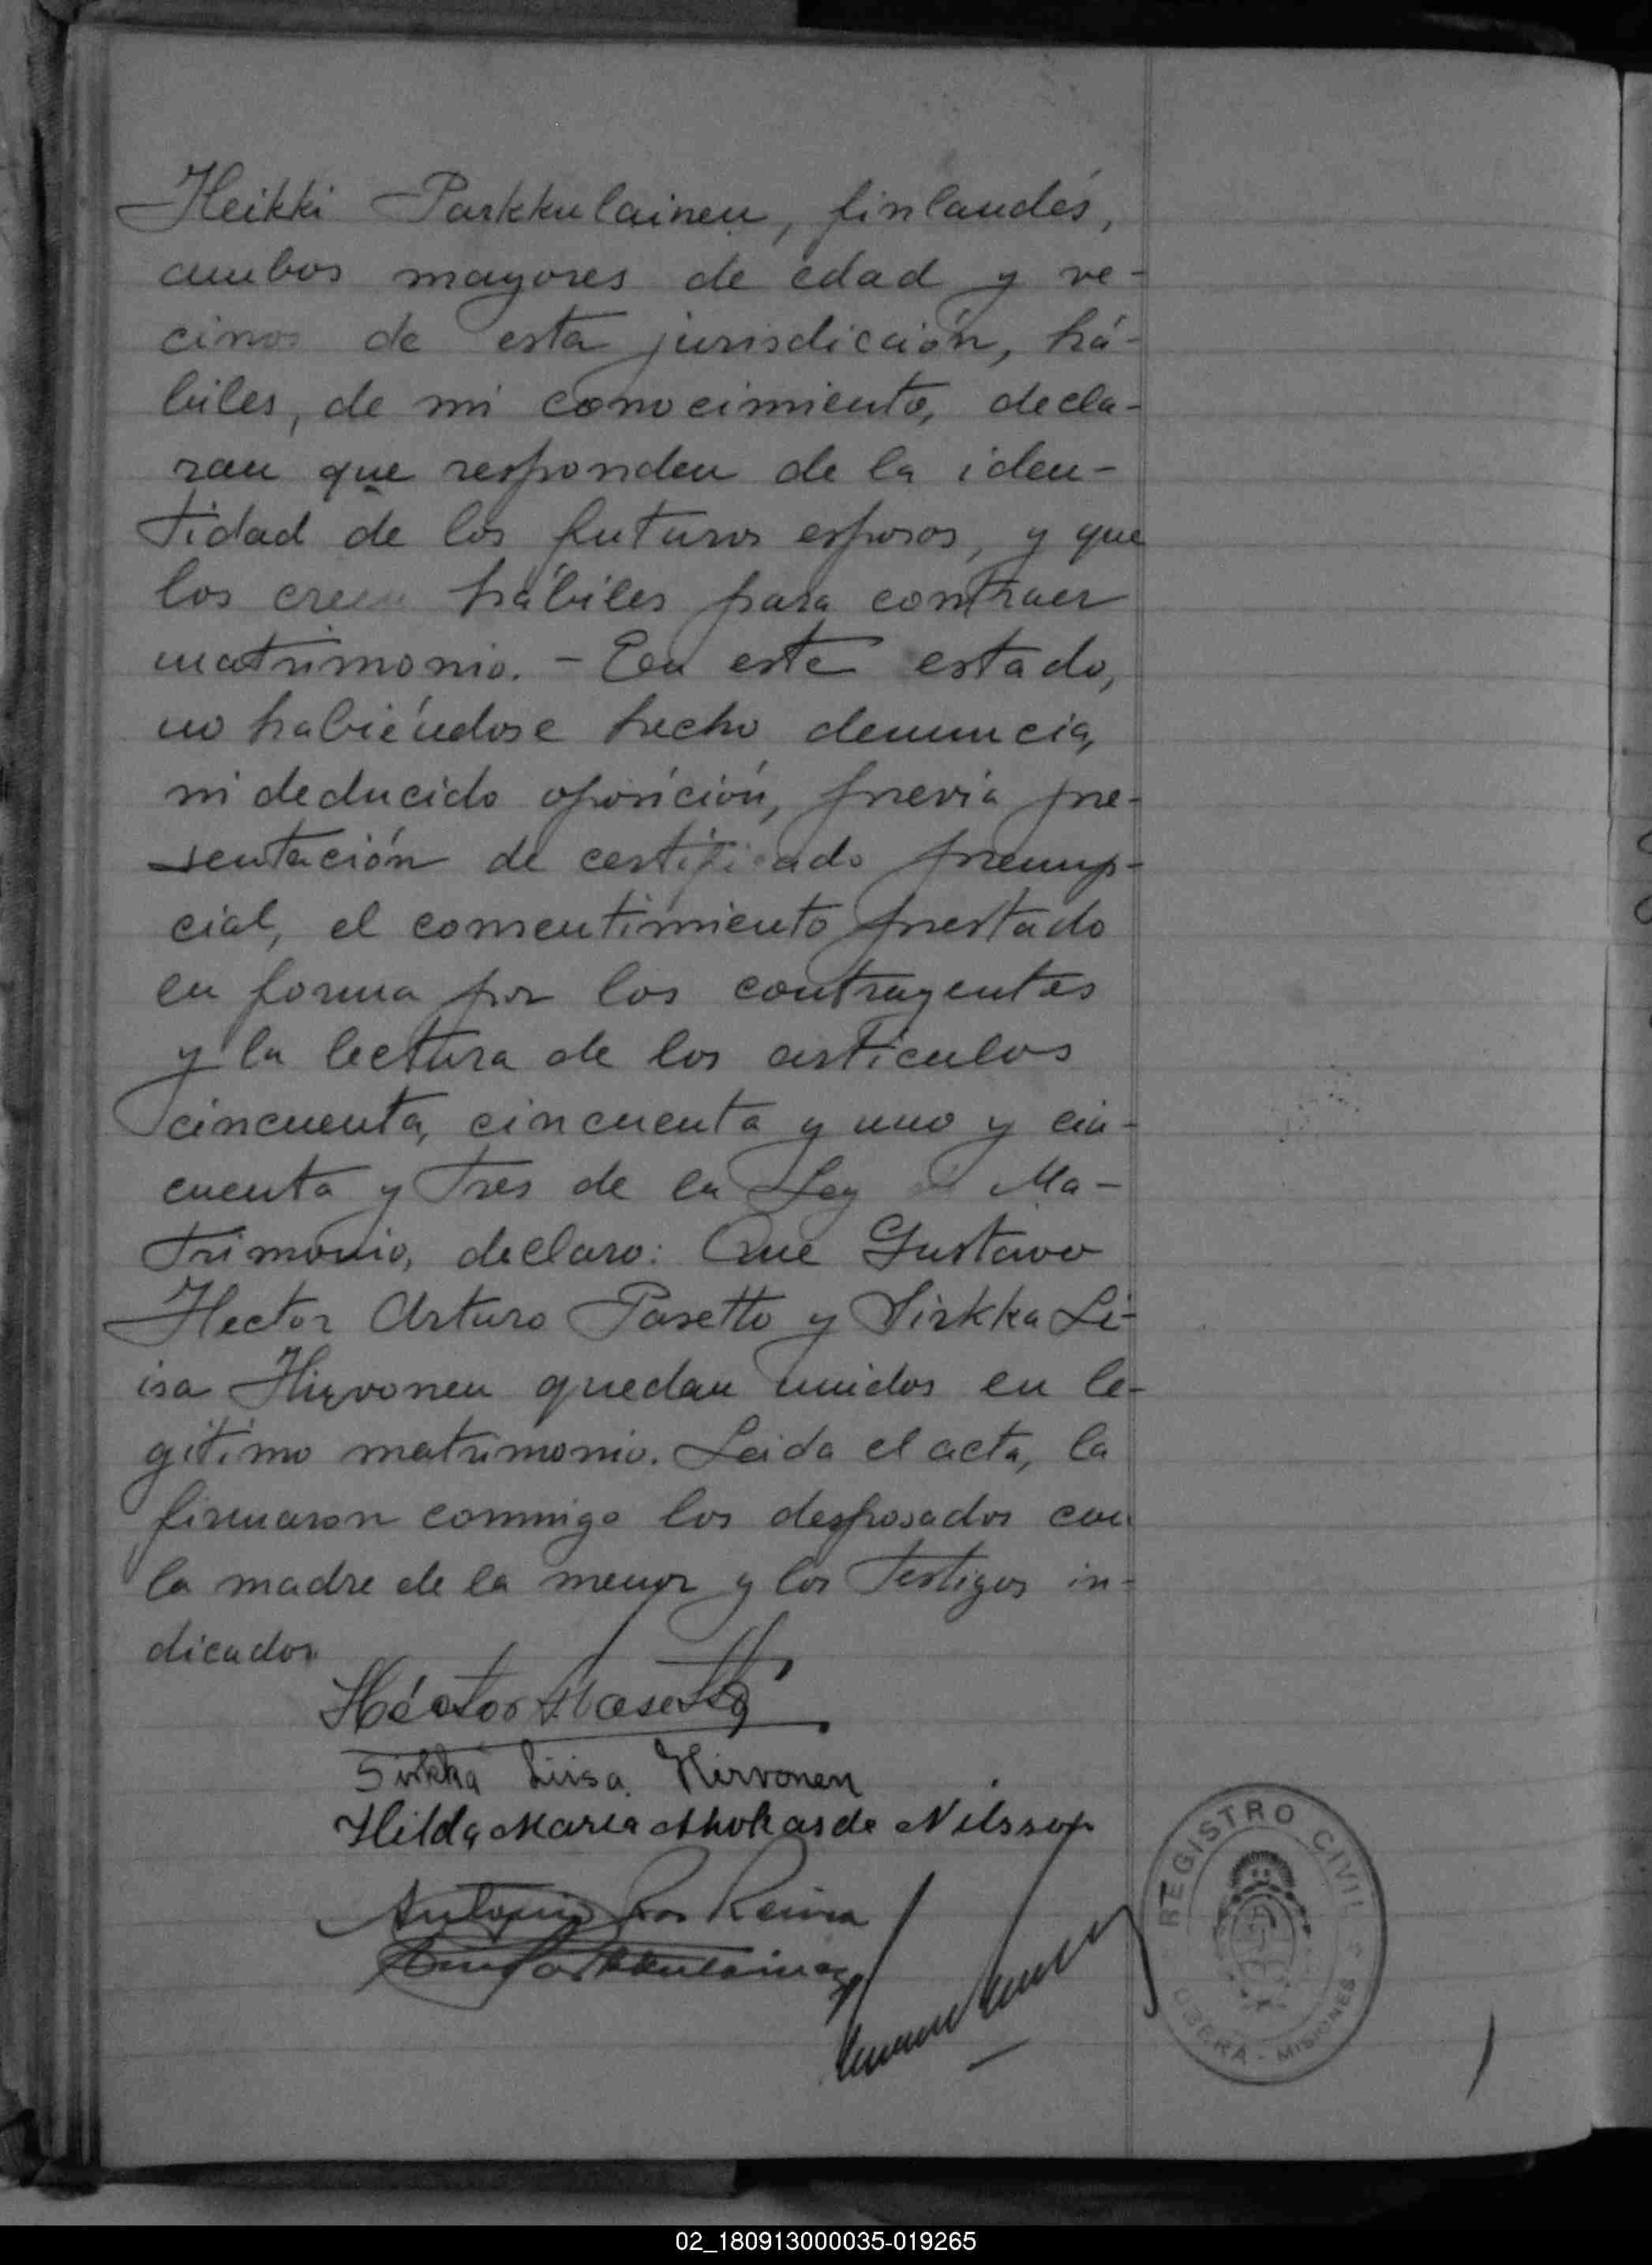 Heikki Parkkulainen, finlandés,
ambos mayores de edad y ve-
cinos de esta jurisdicción, há-
biles, de mi conocimiento, decla-
ran que responden de la iden-
tidad de los futuros esposos, y que
los creen hábiles para contraer
matrimonio. - En este estado,
no habiéndose hecho denuncia,
ni deducido oposición, previa pre-
sentación de certificado prenup-
cial, el consentimiento prestado
en forma por los contrayentes
y la lectura de los artículos
cincuenta, cincuenta y uno y cin-
cuenta y tres de la Ley de Ma-
trimonio, declaro: Que Gustavo
Hector Arturo Pasetto y Sirkka Li-
isa Hirvonen quedan unidos en le-
gítimo matrimonio. Leida el acta, la
firmaron conmigo los desposados con
la madre de la menor y los testigos in-
dicados
Héctor Pasetto
Sirkka Liisa Hirvonen
Hilda Maria Ahokas de Nilsson
Antonio Reina
Parkkulainen
REGISTRO CIVIL
OBERA - MISIONES
02_180913000035-019265